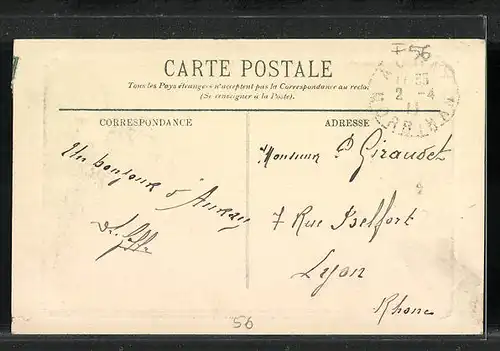 56
CARTE POSTALE
Tous les Pays étrangers n'acceptent pas la Correspondance au recto
(Se renseigner à la Poste).
CORRESPONDANCE
ADRESSE
2 - 4
11
MORBIHAN
Un bonjour d'Auray
Monsieur P Giraudet
7 Rue Belfort
Lyon
Rhone
56